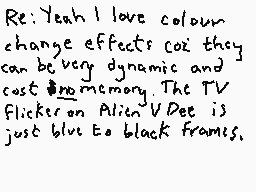 Re: Yeah I love colour
change effects coz they
can be very dynamic and
cost no memory. The TV
flicker on Alien V Dee is
just blue to black frames.